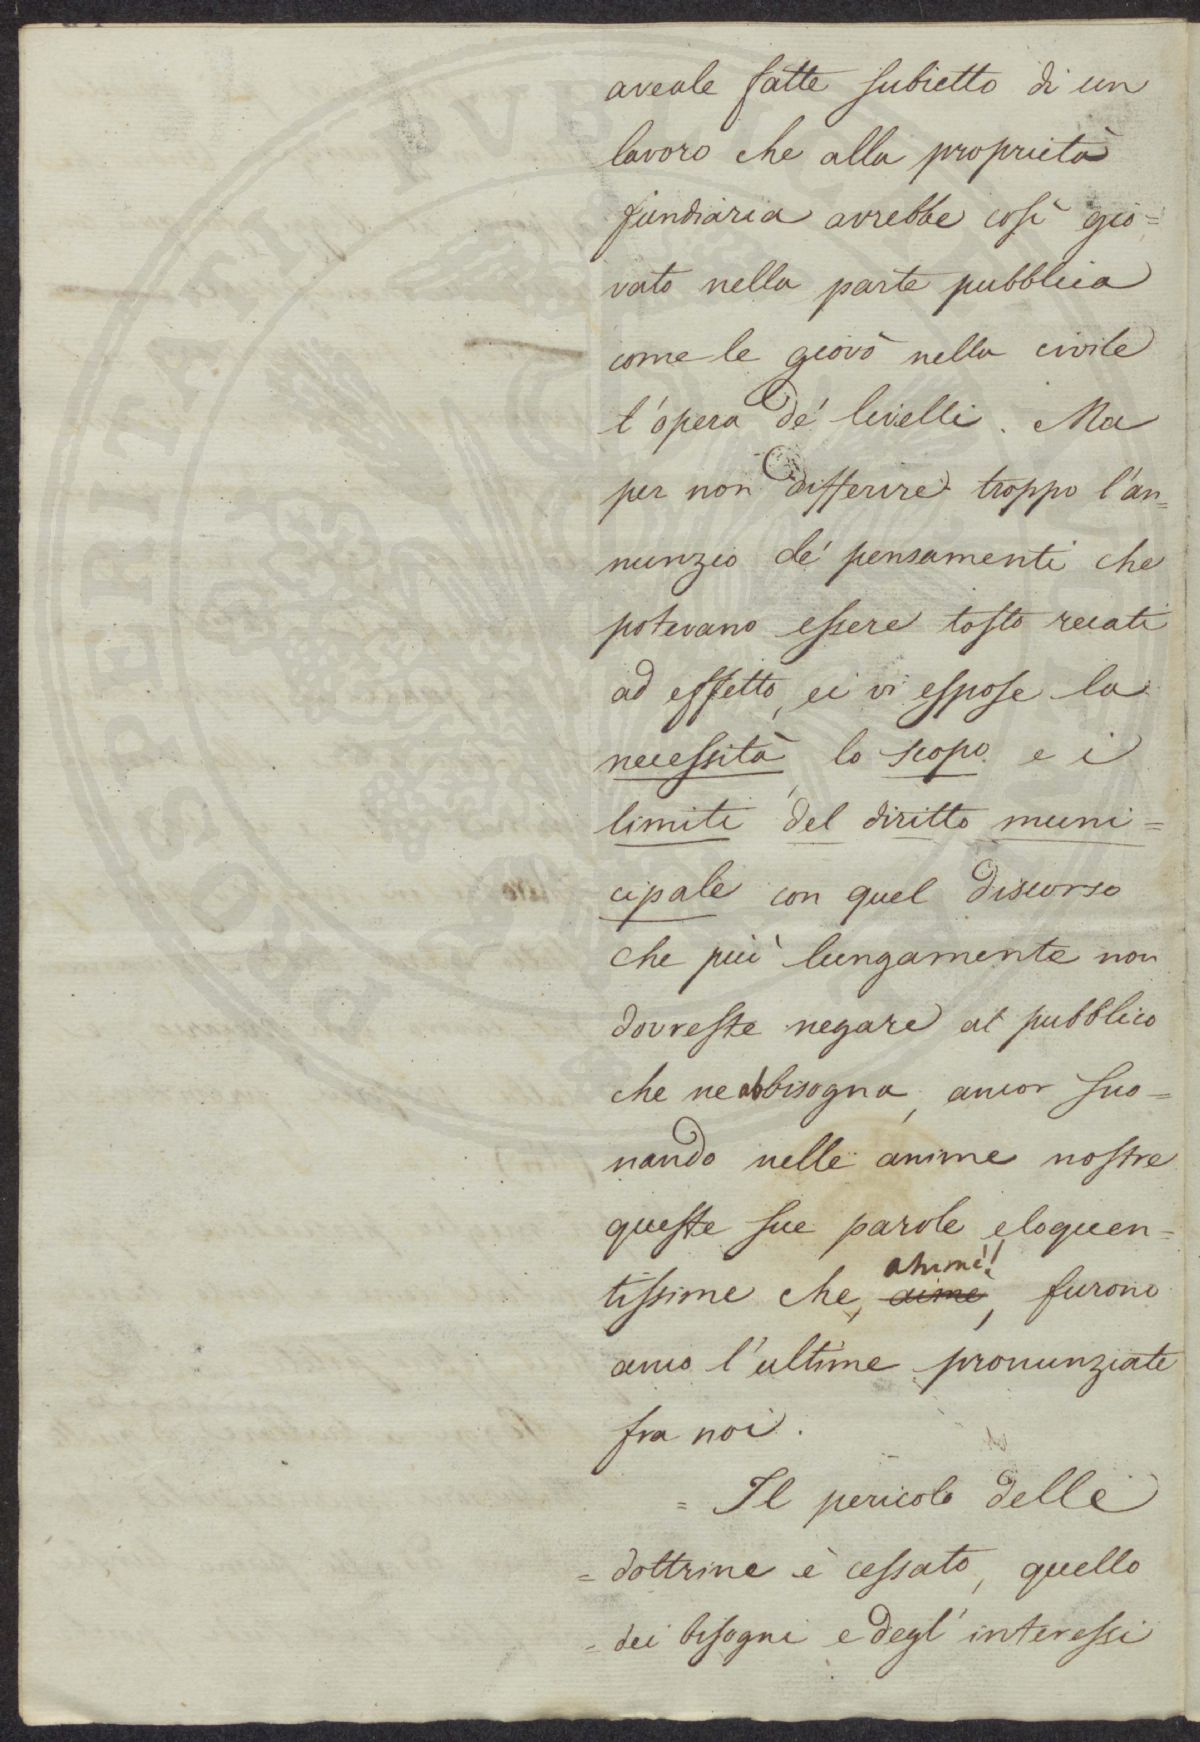 aveale fatte subietto di un
lavoro che alla proprietà
fundiaria avrebbe così gio=
vato nella parte pubblica
come le giovò nella civile
l'opera de' livelli. Ma
per non differire troppo l'an=
nunzio de' pensamenti che
potevano essere tosto recati
ad effetto, ei vi espose la
necessità, lo scopo e i
limiti del diritto muni=
cipale con quel discorso
che più lungamente non
dovreste negare al pubblico
che ne abbisogna, ancor suo=
nando nelle anime nostre
queste sue parole eloquen=
tissime che, aimè, ahimè! furono
anco l'ultime pronunziate
fra noi.
= Il pericolo delle
= dottrine è cessato, quello
= dei bisogni e degl' interessi